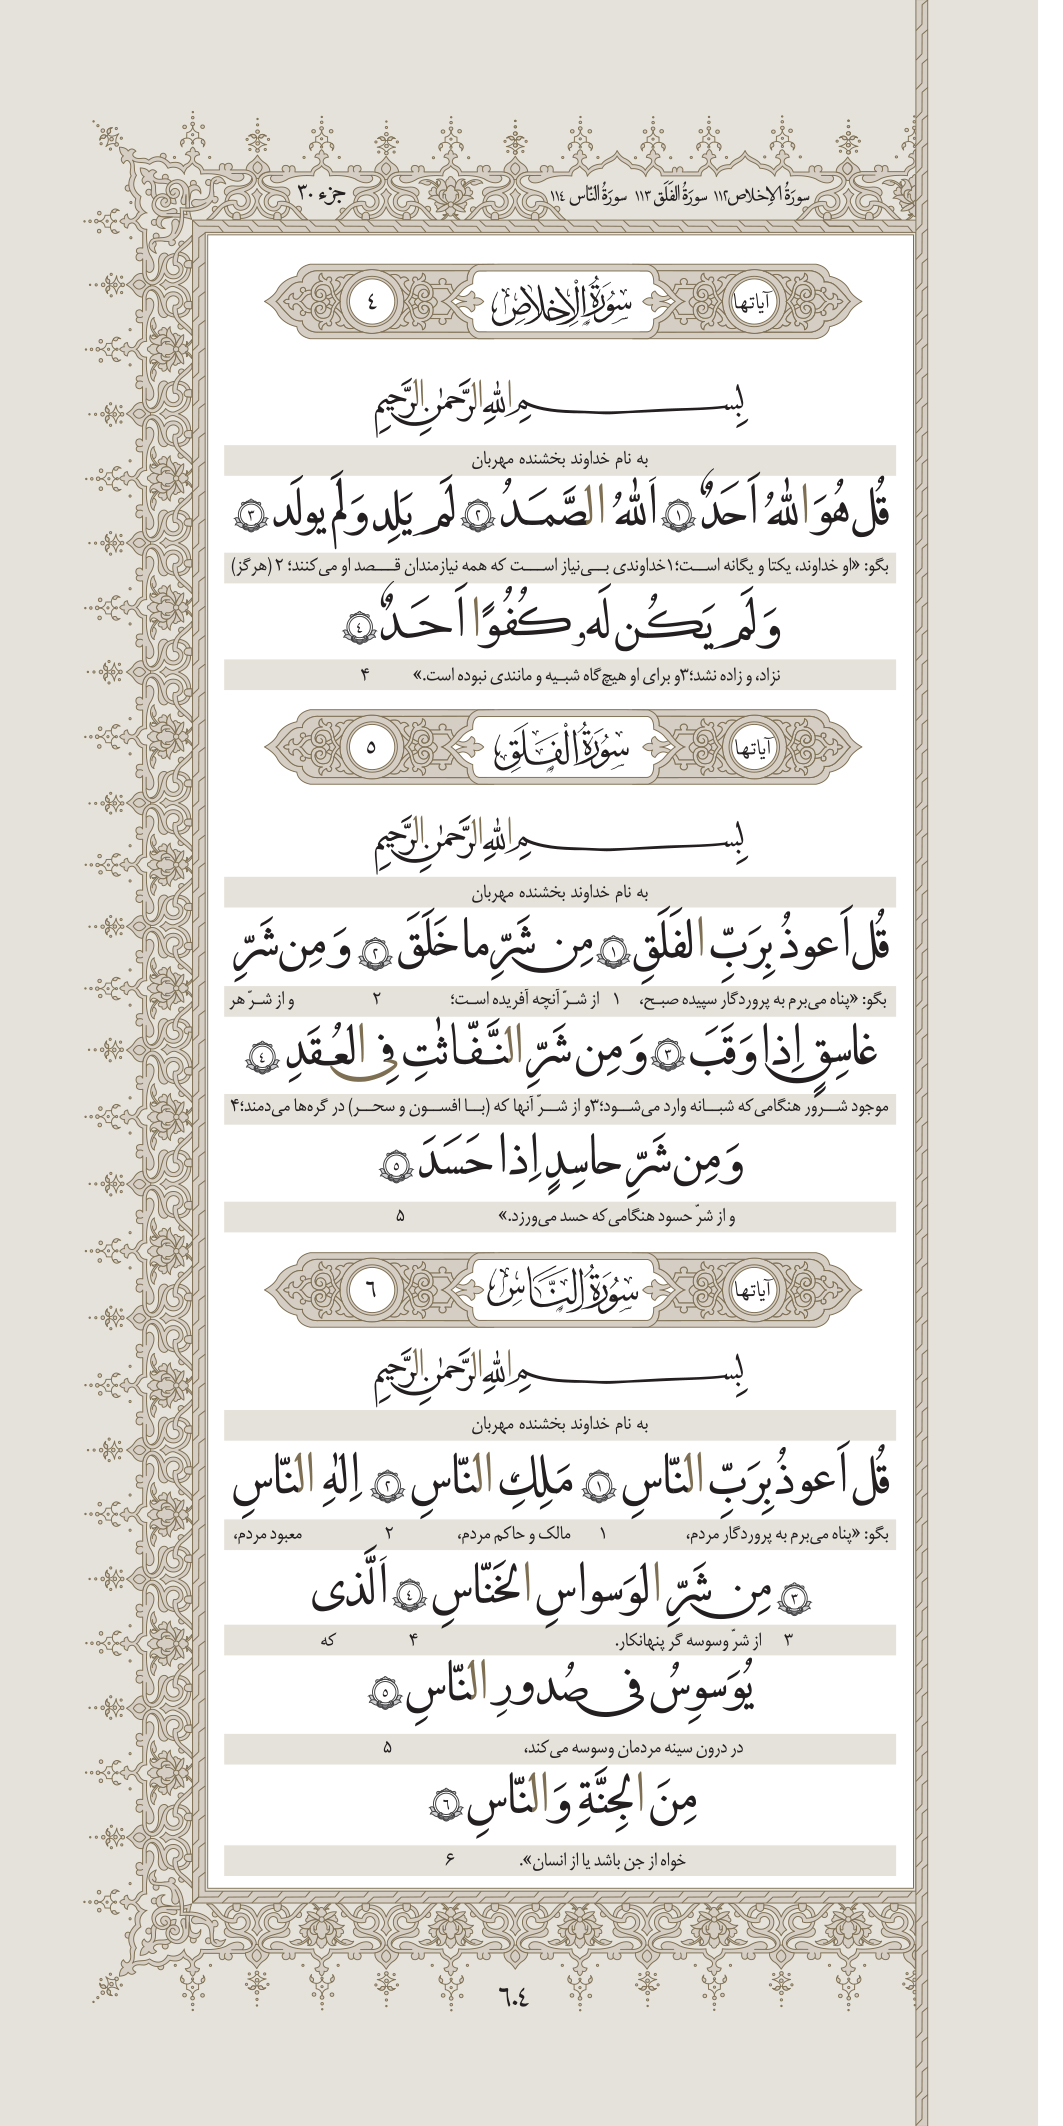 سورَةُ الإخلاص ١١٢ سورَةُ الفَلَق ١١٣ سورَةُ النّاس ١١٤ جزء ٣٠
آیاتها سُورَةُ الْاِخلاص ٤
بِسمِ اللهِ الرَّحمٰنِ الرَّحیمِ
به نام خداوند بخشنده مهربان
قُل هُوَ اللهُ اَحَدٌ ١ اَللهُ الصَّمَدُ ٢ لَم یَلِد وَلَم یولَد ٣
بگو: «او خداوند، یکتا و یگانه است؛ ۱ خداوندی بی‌نیاز است که همه نیازمندان قصد او می‌کنند؛ ۲ (هرگز)
وَلَم یَکُن لَهو کُفُوًا اَحَدٌ ٤
نزاد، و زاده نشد؛ ۳ و برای او هیچ‌گاه شبیه و مانندی نبوده است.» ۴
آیاتها سُورَةُ الْفَلَقِ ٥
بِسمِ اللهِ الرَّحمٰنِ الرَّحیمِ
به نام خداوند بخشنده مهربان
قُل اَعوذُ بِرَبِّ الفَلَقِ ١ مِن شَرِّ ما خَلَقَ ٢ وَ مِن شَرِّ
بگو: «پناه می‌برم به پروردگار سپیده صبح، ۱ از شرّ آنچه آفریده است؛ ۲ و از شرّ هر
غاسِقٍ اِذا وَقَبَ ٣ وَ مِن شَرِّ النَّفّاثٰتِ فِی العُقَدِ ٤
موجود شرور هنگامی که شبانه وارد می‌شود؛ ۳ و از شرّ آنها که (با افسون و سحر) در گره‌ها می‌دمند؛ ۴
وَ مِن شَرِّ حاسِدٍ اِذا حَسَدَ ٥
و از شرّ حسود هنگامی که حسد می‌ورزد.» ۵
آیاتها سُورَةُ النَّاس ٦
بِسمِ اللهِ الرَّحمٰنِ الرَّحیمِ
به نام خداوند بخشنده مهربان
قُل اَعوذُ بِرَبِّ النّاسِ ١ مَلِكِ النّاسِ ٢ اِلٰهِ النّاسِ
بگو: «پناه می‌برم به پروردگار مردم، ۱ مالک و حاکم مردم، ۲ معبود مردم،
٣ مِن شَرِّ الوَسواسِ الخَنّاسِ ٤ اَلَّذی
۳ از شرّ وسوسه گر پنهانکار. ۴ که
یُوَسوِسُ فی صُدورِ النّاسِ ٥
در درون سینه مردمان وسوسه می‌کند، ۵
مِنَ الجِنَّةِ وَ النّاسِ ٦
خواه از جن باشد یا از انسان». ۶
٦٠٤